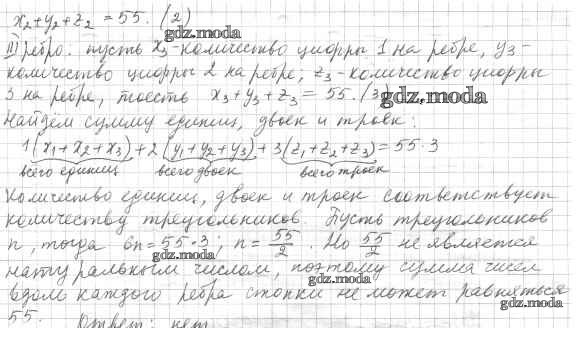 x₂+y₂+z₂ = 55. (2)
gdz.moda
III ребро: пусть x₃-количество цифры 1 на ребре, y₃-
количество цифры 2 на ребре; z₃-количество цифры
3 на ребре, тоесть x₃+y₃+z₃ = 55. (3)
gdz.moda
Найдем сумму единиц, двоек и троек:
1(x₁+x₂+x₃)+2(y₁+y₂+y₃)+3(z₁+z₂+z₃)=55·3
всего единиц всего двоек всего троек
Количество единиц, двоек и троек соответствует
количеству треугольников. Пусть треугольников
n, тогда 6n=55·3; n=55/2. Но 55/2 не является
gdz.moda
натуральным числом, поэтому сумма чисел
gdz.moda
вдоль каждого ребра стопки не может равняться
gdz.moda
55. Ответ: нет